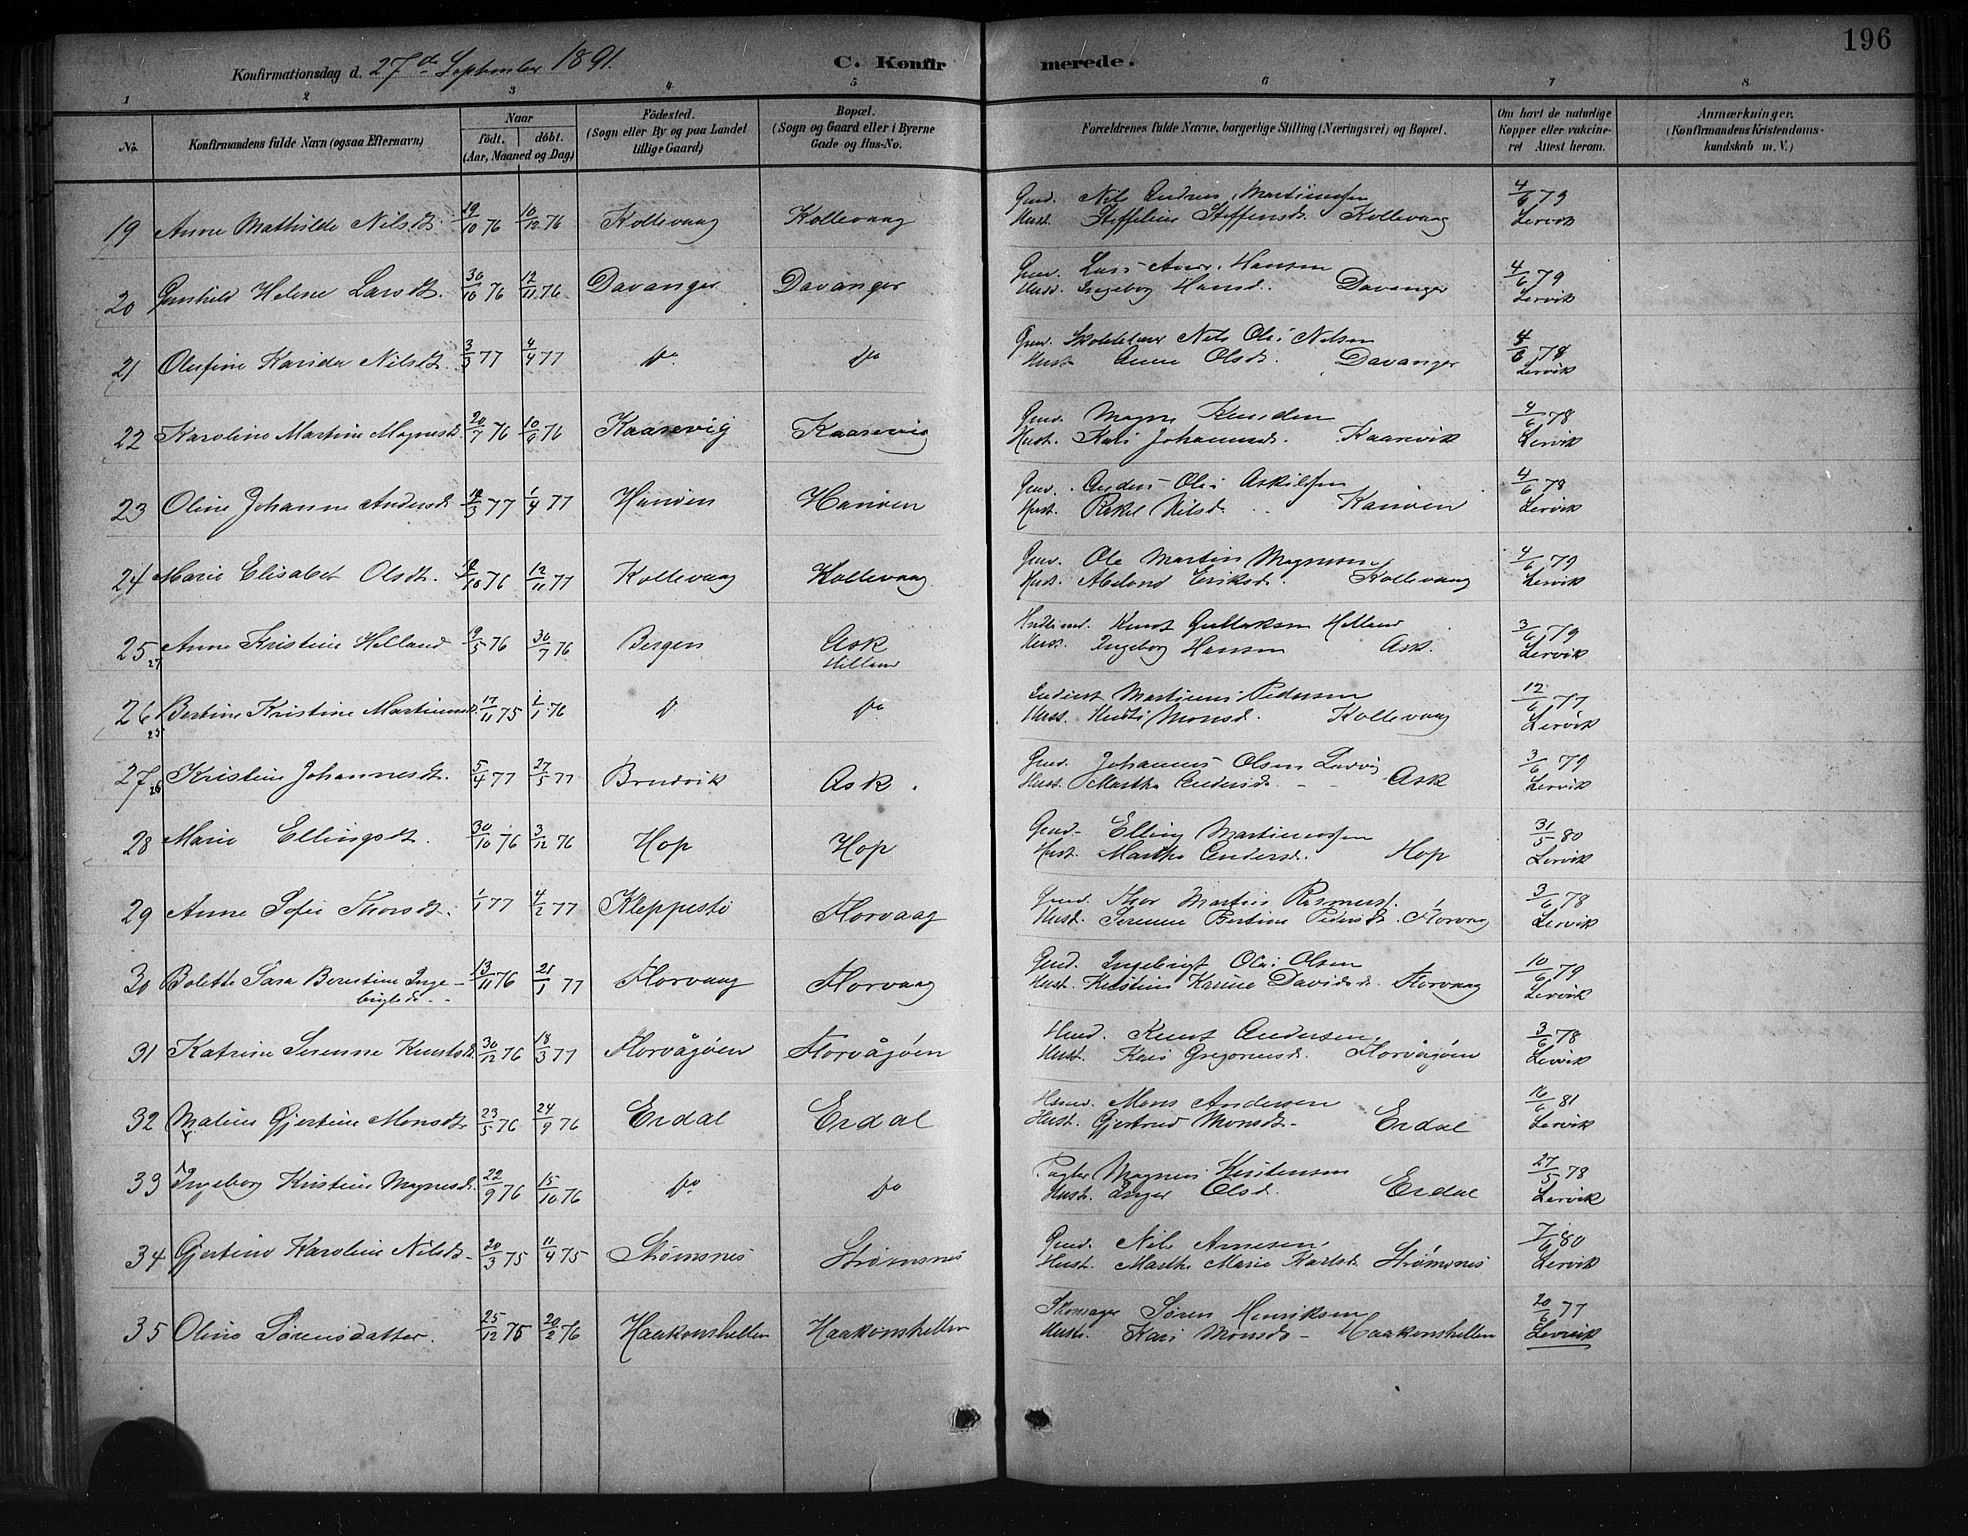 196
Konfirmationsdag d. 27de September 1891.
C. Konfirmerede.
1 2 3 4 5 6 7 8
No.
Konfirmandens fulde Navn (ogsaa Efternavn)
Naar
födt. döbt.
(Aar, Maaned og Dag)
Födested.
(Sogn eller By og paa Landet
tillige Gaard)
Bopæl.
(Sogn og Gaard eller i Byerne
Gade og Hus-No.
Forældrenes fulde Navne, borgerlige Stilling (Næringsvei) og Bopæl.
Om havt de naturlige
Kopper eller vakcine-
ret Attest herom.
Anmærkninger.
(Konfirmandens Kristendoms-
kundskab m. V.)
19 Anne Mathilde Nilsdt. 29/10 76 10/12 76 Kollevaag Kollevaag Gmd. Nils Andreas Martinussen 4/6 79
Hust. Steffeline Steffensd. Kollevaag Lervik
20 Gunhild Helene Larsdt. 30/10 76 12/11 76 Davanger Davanger Gmd. Lars Hansen 4/6 79
Hust. Ingeborg Hansd. Davanger Lervik
21 Olufine Karida Nilsdt. 3/3 77 4/4 77 do do Gmd. Nils Ole Nilsen 4/6 78
Hust. Anne Olsdt. Davanger Lervik
22 Karoline Martine Magnesd. 20/7 76 10/9 76 Kaarevig Kaarevig Gmd. Magne Knudsen 4/6 78
Hust. Kari Johannesd. Kaarevik Lervik
23 Oline Johanne Andersd. 12/3 77 1/4 77 Hanöen Hanöen Gmd. Anders Ole Askildsen 4/6 78
Hust. Rakel Nilsd. Hanöen Lervik
24 Marie Elisabet Olsdt. 9/10 76 12/11 77 Kollevaag Kollevaag Gmd. Ole Martin Magnesen 4/6 79
Hust. Eriksd. Kollevaag Lervik
25 Anne Kristine Helland 9/5 76 30/7 76 Bergen Ask Knut Gullaksen Helland 3/6 79
27 Helland Hust. Ingeborg Hansen Ask. Lervik
26 Bertine Kristine Martinusd. 17/11 75 1/1 76 do do Martinus Pedersen 12/6 77
25 Hust. Monsd. Kollevaag Lervik
27 Kristine Johannesdt. 5/4 77 27/5 77 Bruvik Ask. Gmd. Johannes Olsen 3/6 79
26 Hust. Martha Andersd. Ask Lervik
28 Marie Ellingsdt. 30/10 76 3/12 76 Hop Hop Gmd. Elling Martinussen 31/5 80
Hust. Martha Andersd. Hop Lervik
29 Anne Sofie Thorsdt. 1/1 77 4/2 77 Kleppestö Florvaag Gmd. Thor Martin Rasmuss. 3/6 78
Hust. Serenne Bertine Pedersdt. Florvaag Lervik
30 Bolette Sara Berentine Inge- 13/11 76 21/1 77 Florvaag Florvaag Gmd. Ingebrigt Ole Olsen 10/6 79
brigtsd. Hust. Kristine Karine Davidsd. Florvaag Lervik
31 Katrine Serenne Knutsd. 30/12 76 18/3 77 Florvågöen Florvågöen Knut Andersen 3/6 78
Hust. Kari Gregoriusd. Florvågöen Lervik
32 Maline Gjertine Monsdt. 23/5 76 24/9 76 Erdal Erdal Mons Andersen 16/6 81
Hust. Gjertrud Monsdt. Erdal Lervik
33 Ingeborg Kristine Magnesd. 22/9 76 15/10 76 do do Magnus Kristensen 27/5 78
Hust. Inger Olsd. Erdal Lervik
34 Gjertine Karoline Nilsdt. 20/3 75 11/4 75 Strömsnes Strömsnes Gmd. Nils Arnesen 7/6 80
Hust. Marthe Marie Karlsd. Strömsnes Lervik
35 Oline Sørensdatter. 25/12 75 20/2 76 Haakonshellen Haakonshellen Skomager Søren Henriksen 20/6 77
Hust. Kari Monsd. Haakonshellen Lervik